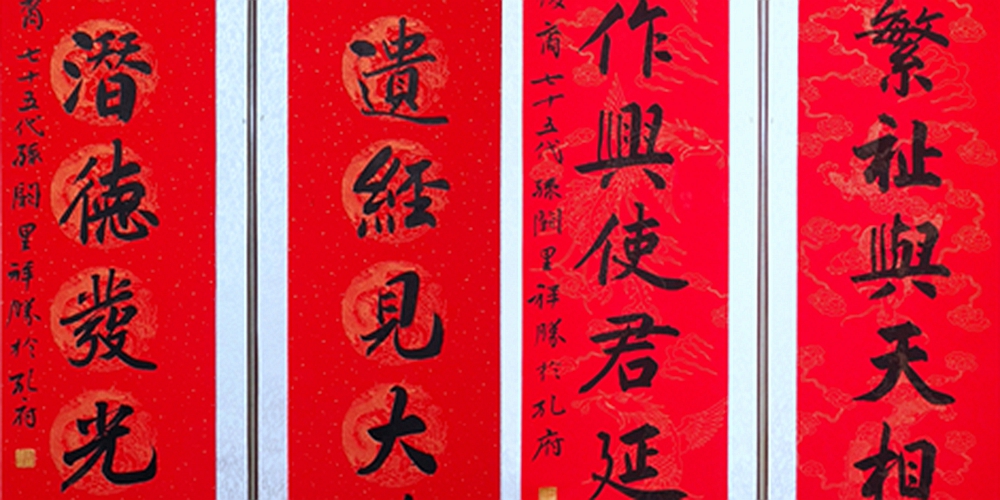 繁祉與天相
作興使君延
七十五代孫闕里祥勝於孔府
遺經見大
潛德發光
七十五代孫闕里祥勝於孔府